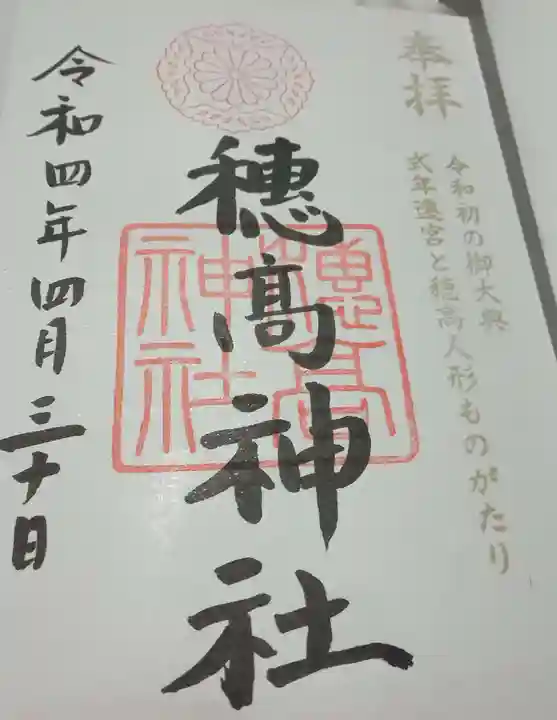 奉拝
令和初の御大典
式年遷宮と穂高人形ものがたり
穂髙神社
穂髙神社
令和四年四月三十日